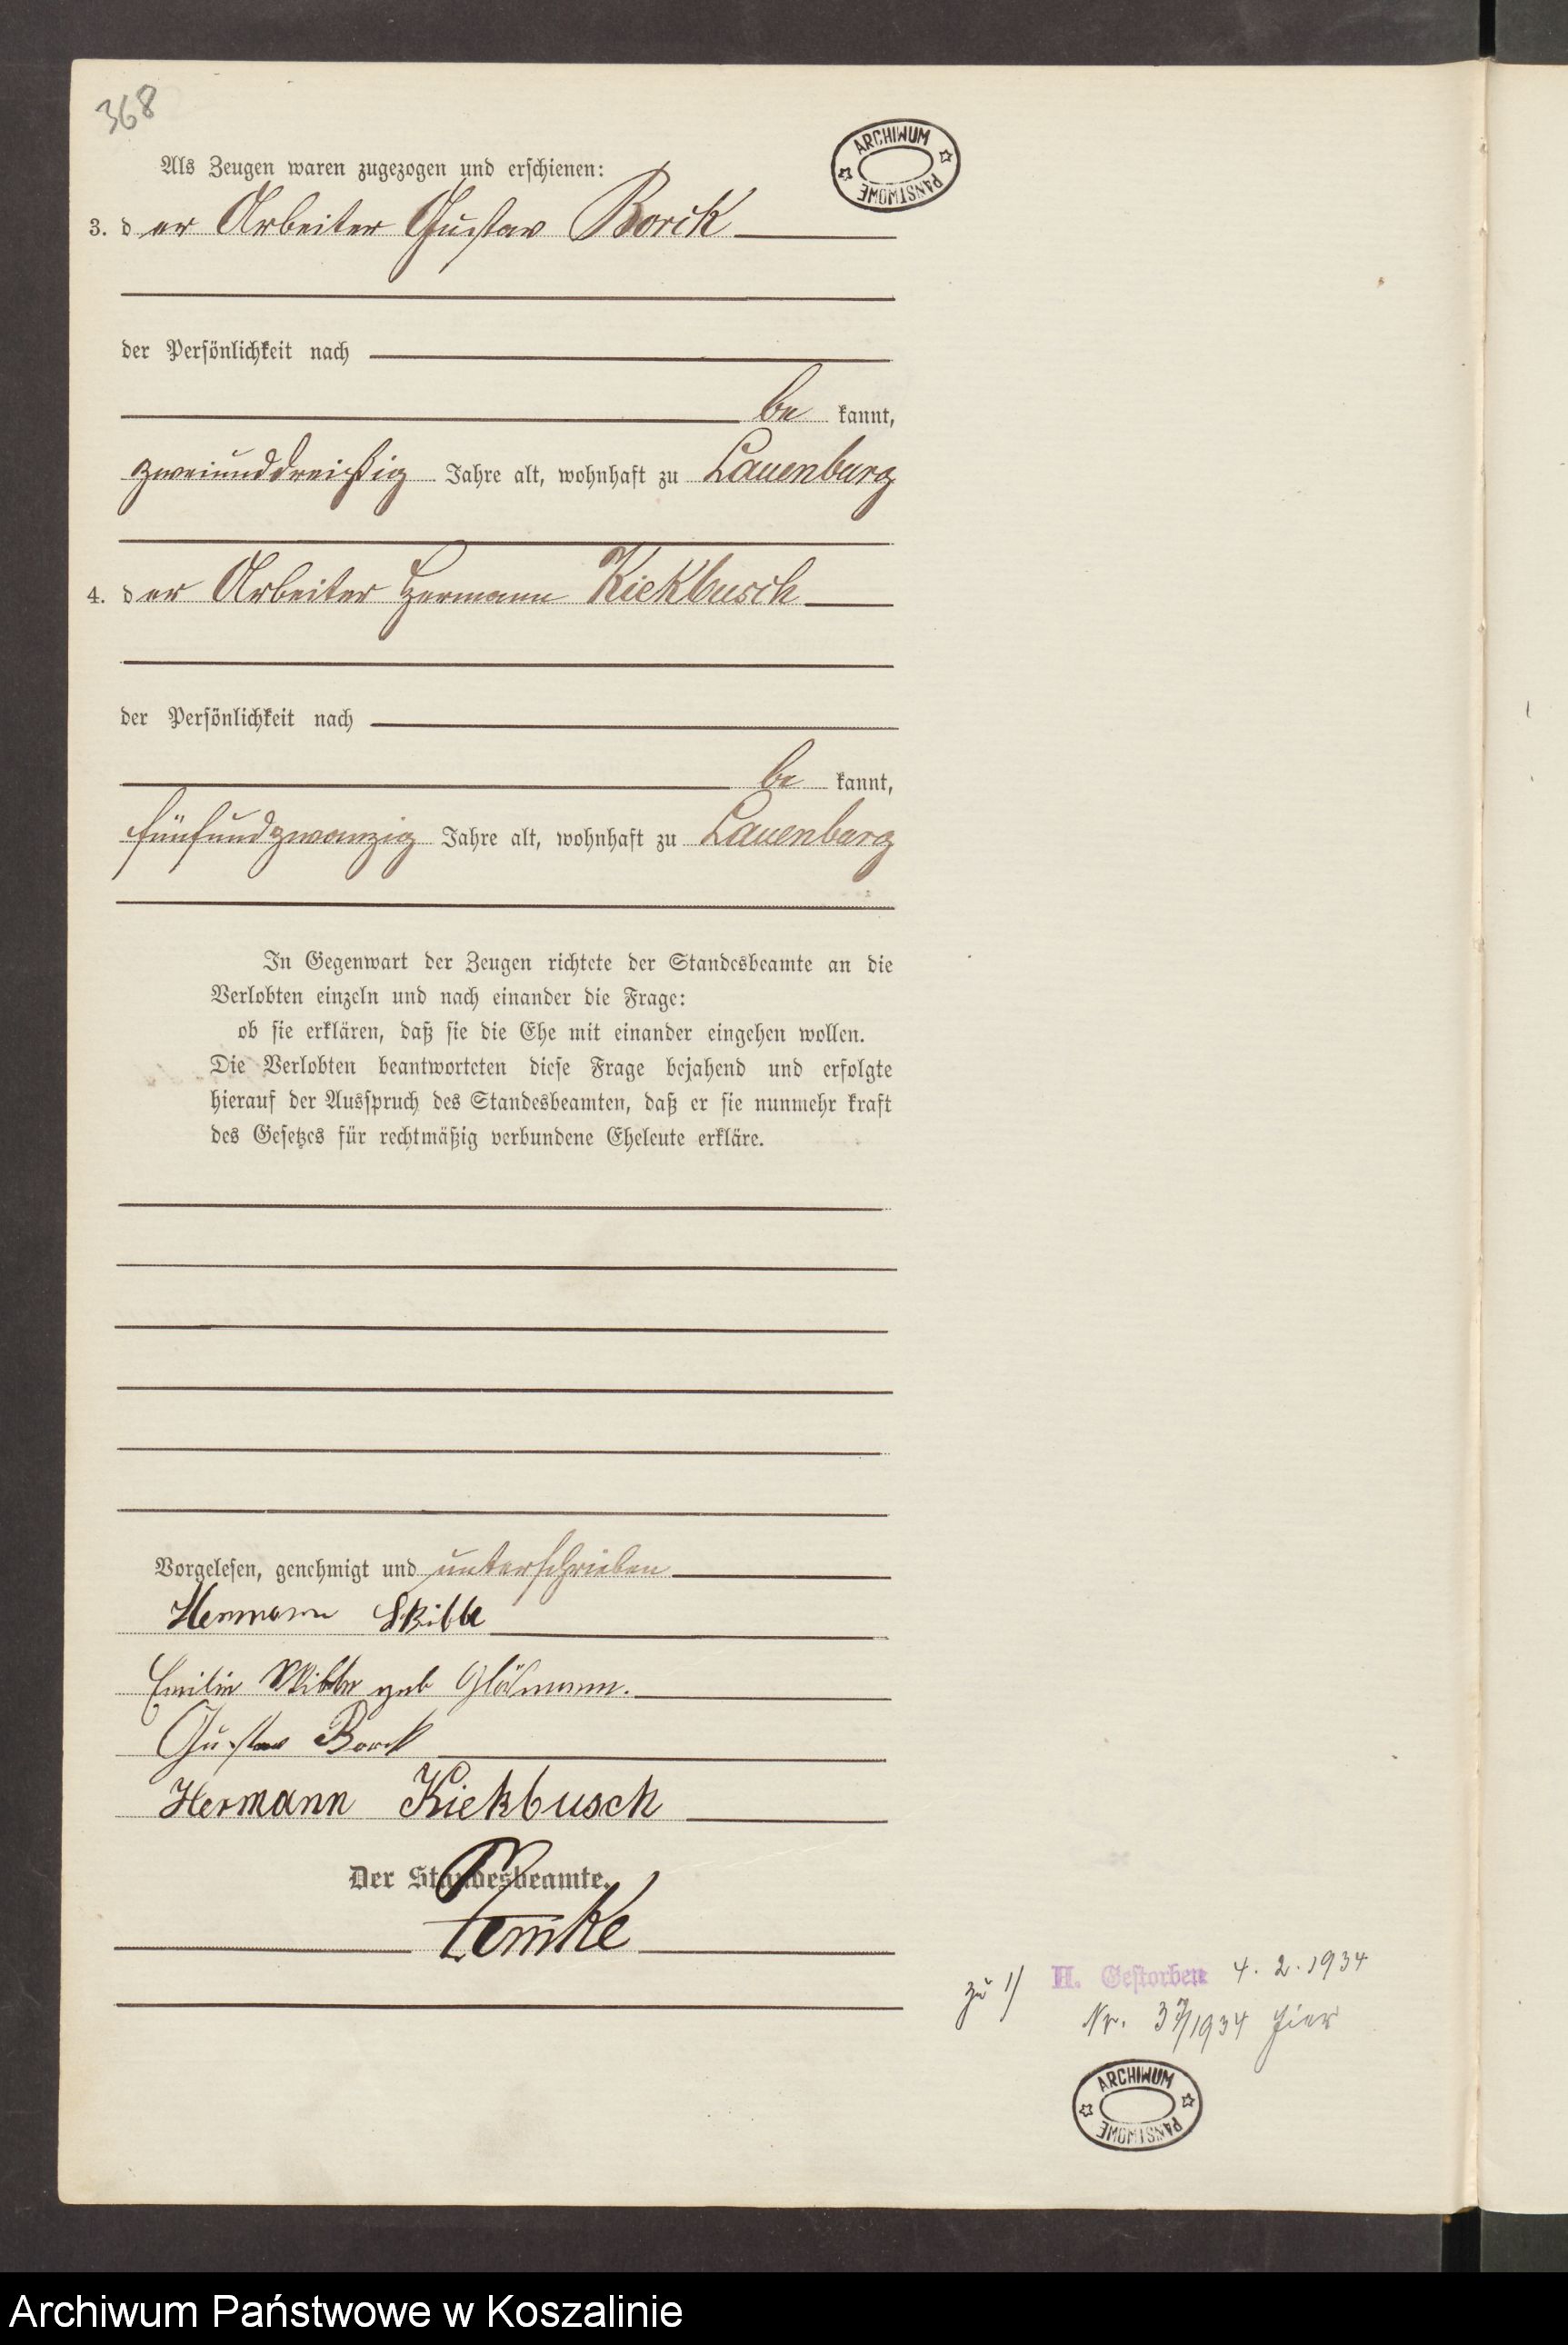 368
ARCHIWUM PAŃSTWOWE
Als Zeugen waren zugezogen und erschienen:
3. der Arbeiter Gustav Borck
der Persönlichkeit nach
be kannt,
zweiunddreißig Jahre alt, wohnhaft zu Lauenburg
4. der Arbeiter Hermann Kiekbusch
der Persönlichkeit nach
be kannt,
fünfundzwanzig Jahre alt, wohnhaft zu Lauenburg
In Gegenwart der Zeugen richtete der Standesbeamte an die
Verlobten einzeln und nach einander die Frage:
ob sie erklären, daß sie die Ehe mit einander eingehen wollen.
Die Verlobten beantworteten diese Frage bejahend und erfolgte
hierauf der Ausspruch des Standesbeamten, daß er sie nunmehr kraft
des Gesetzes für rechtmäßig verbundene Eheleute erkläre.
Vorgelesen, genehmigt und unterschrieben
Hermann Skibbe
Emilie Skibbe geb
Gustav Borck
Hermann Kiekbusch
Der Standesbeamte.
Lemke
zu 1) H. Gestorben 4. 2. 1934
Nr. 37/1934 hier
ARCHIWUM PAŃSTWOWE
Archiwum Państwowe w Koszalinie